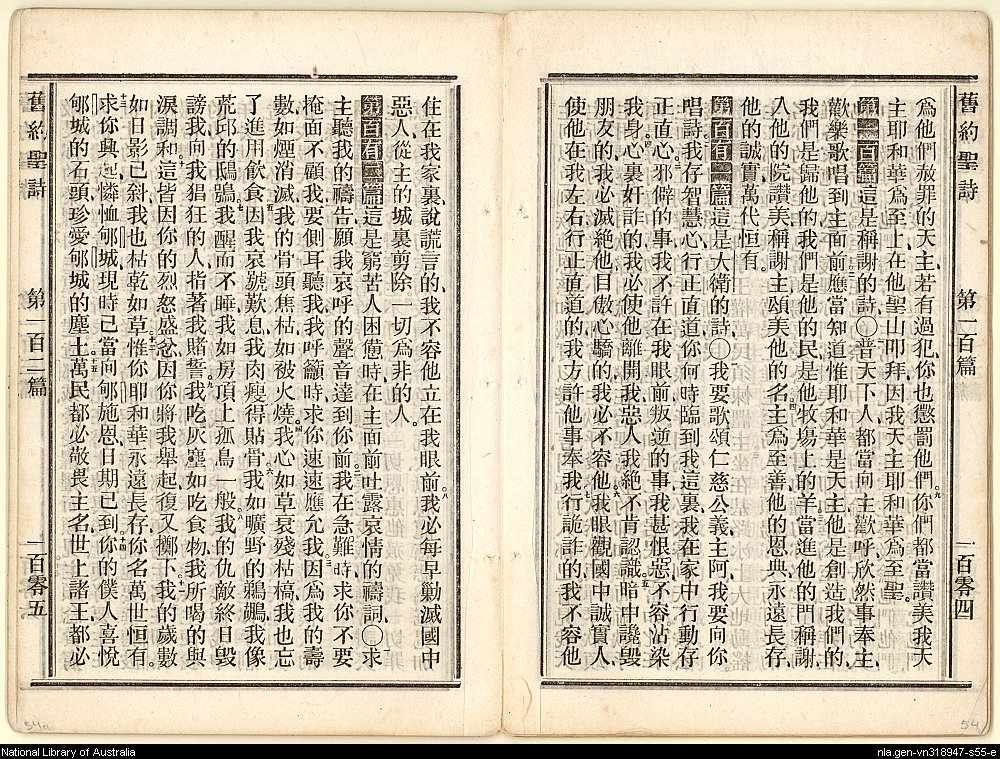 舊約聖詩　第一百篇　一百零四
爲他們赦罪的天主、若有過犯、你也懲罰他們、九你們都當讚美我天
主耶和華爲至上、在他聖山叩拜、因我天主耶和華爲至聖。
第一百篇這是稱謝的詩、〇一普天下人、都當向主歡呼、二欣然事奉主、
歡樂歌唱到主面前、三應當知道惟耶和華是天主、他是創造我們的、
我們是歸他的、我們是他的民、是他牧場上的羊、四當進他的門稱謝、
入他的院讚美、稱謝主、頌美他的名、五主爲至善、他的恩典永遠長存、
他的誠實萬代恒有。
第一百有一篇這是大衛的詩、〇一我要歌頌仁慈公義、主阿、我要向你
唱詩、二我存智慧心、行正直道、你何時臨到我這裏、我在家中行動、存
正直心、三邪僻的事、我不許在我眼前、叛逆的事、我甚恨惡、不容沾染
我身、四心裏奸詐的、我必使他離開我、惡人我絕不肯認識、五暗中讒毀
朋友的、我必滅絕他、目傲心驕的、我必不容他、六我眼觀國中誠實人、
使他在我左右、行正直道的、我方許他事奉我、七行詭詐的、我不容他
住在我家裏、說謊言的、我不容他立在我眼前、八我必每早勦滅國中
惡人、從主的城裏剪除一切爲非的人。
第一百有二篇這是窮苦人困憊時、在主面前吐露哀情的禱詞、〇一求
主聽我的禱告、願我哀呼的聲音達到你前、二我在急難時、求你不要
掩面不顧我、要側耳聽我、我呼籲時、求你速速應允我、三因爲我的壽
數如煙消滅、我的骨頭焦枯、如被火燒、四我心如草衰殘枯槁、我也忘
了進用飲食、五因我哀號歎息、我肉瘦得貼骨、六我如曠野的鵜鶘、我像
荒邱的鴟鴞、七我醒而不睡、我如房頂上孤鳥一般、八我的仇敵終日毀
謗我、向我猖狂的人、指著我賭誓、九我吃灰塵如吃食物、我所喝的與
淚調和、十這皆因你的烈怒盛忿、因你將我舉起、復又擲下、十一我的歲數
如日影已斜、我也枯乾如草、十二惟你耶和華永遠長存、你名萬世恒有。
十三求你興起憐恤郇城、現時已當向郇施恩、日期已到、十四你的僕人喜悅
郇城的石頭、珍愛郇城的塵土、十五萬民都必敬畏主名、世上諸王都必
舊約聖詩　第一百二篇　一百零五
54a
54
National Library of Australia
nla.gen-vn318947-s55-e